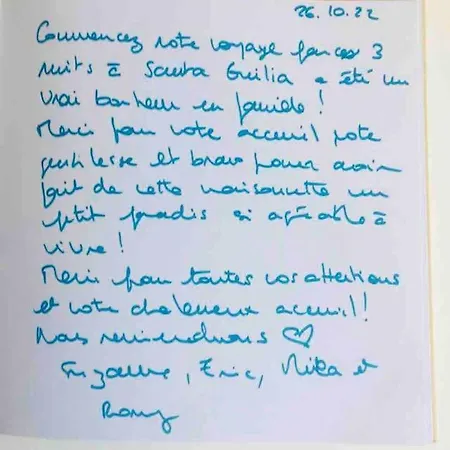 26.10.22
Commencez notre voyage par ces 3
nuits à Santa Giulia a été un
vrai bonheur en famille !
Merci pour votre accueil votre
gentillesse et bravo pour avoir
fait de cette maisonnette un
petit paradis si agréable à
vivre !
Merci pour toutes vos attentions
et votre chaleureux accueil !
Nous reviendrons ♡
Suzanne, Eric, Mika et